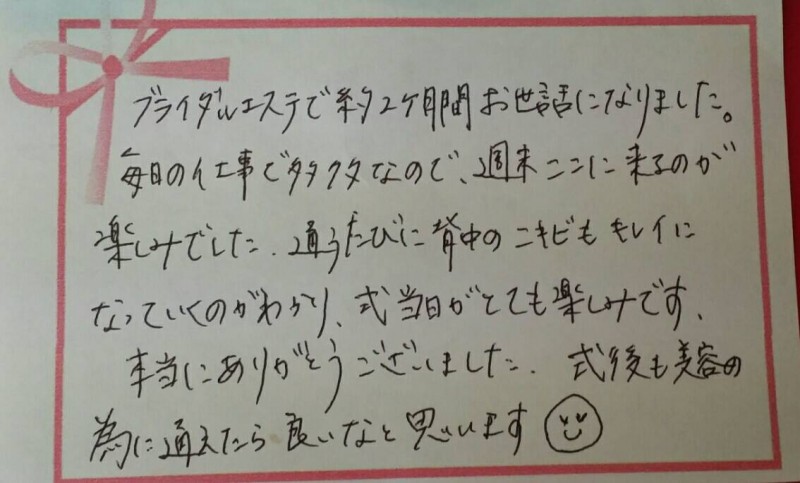 ブライダルエステで約2ケ月間お世話になりました。
毎日の仕事でクタクタなので、週末ここに来るのが
楽しみでした。通うたびに背中のニキビもキレイに
なっていくのがわかり、式当日がとても楽しみです、
本当にありがとうございました。式後も美容の
為に通えたら良いなと思います